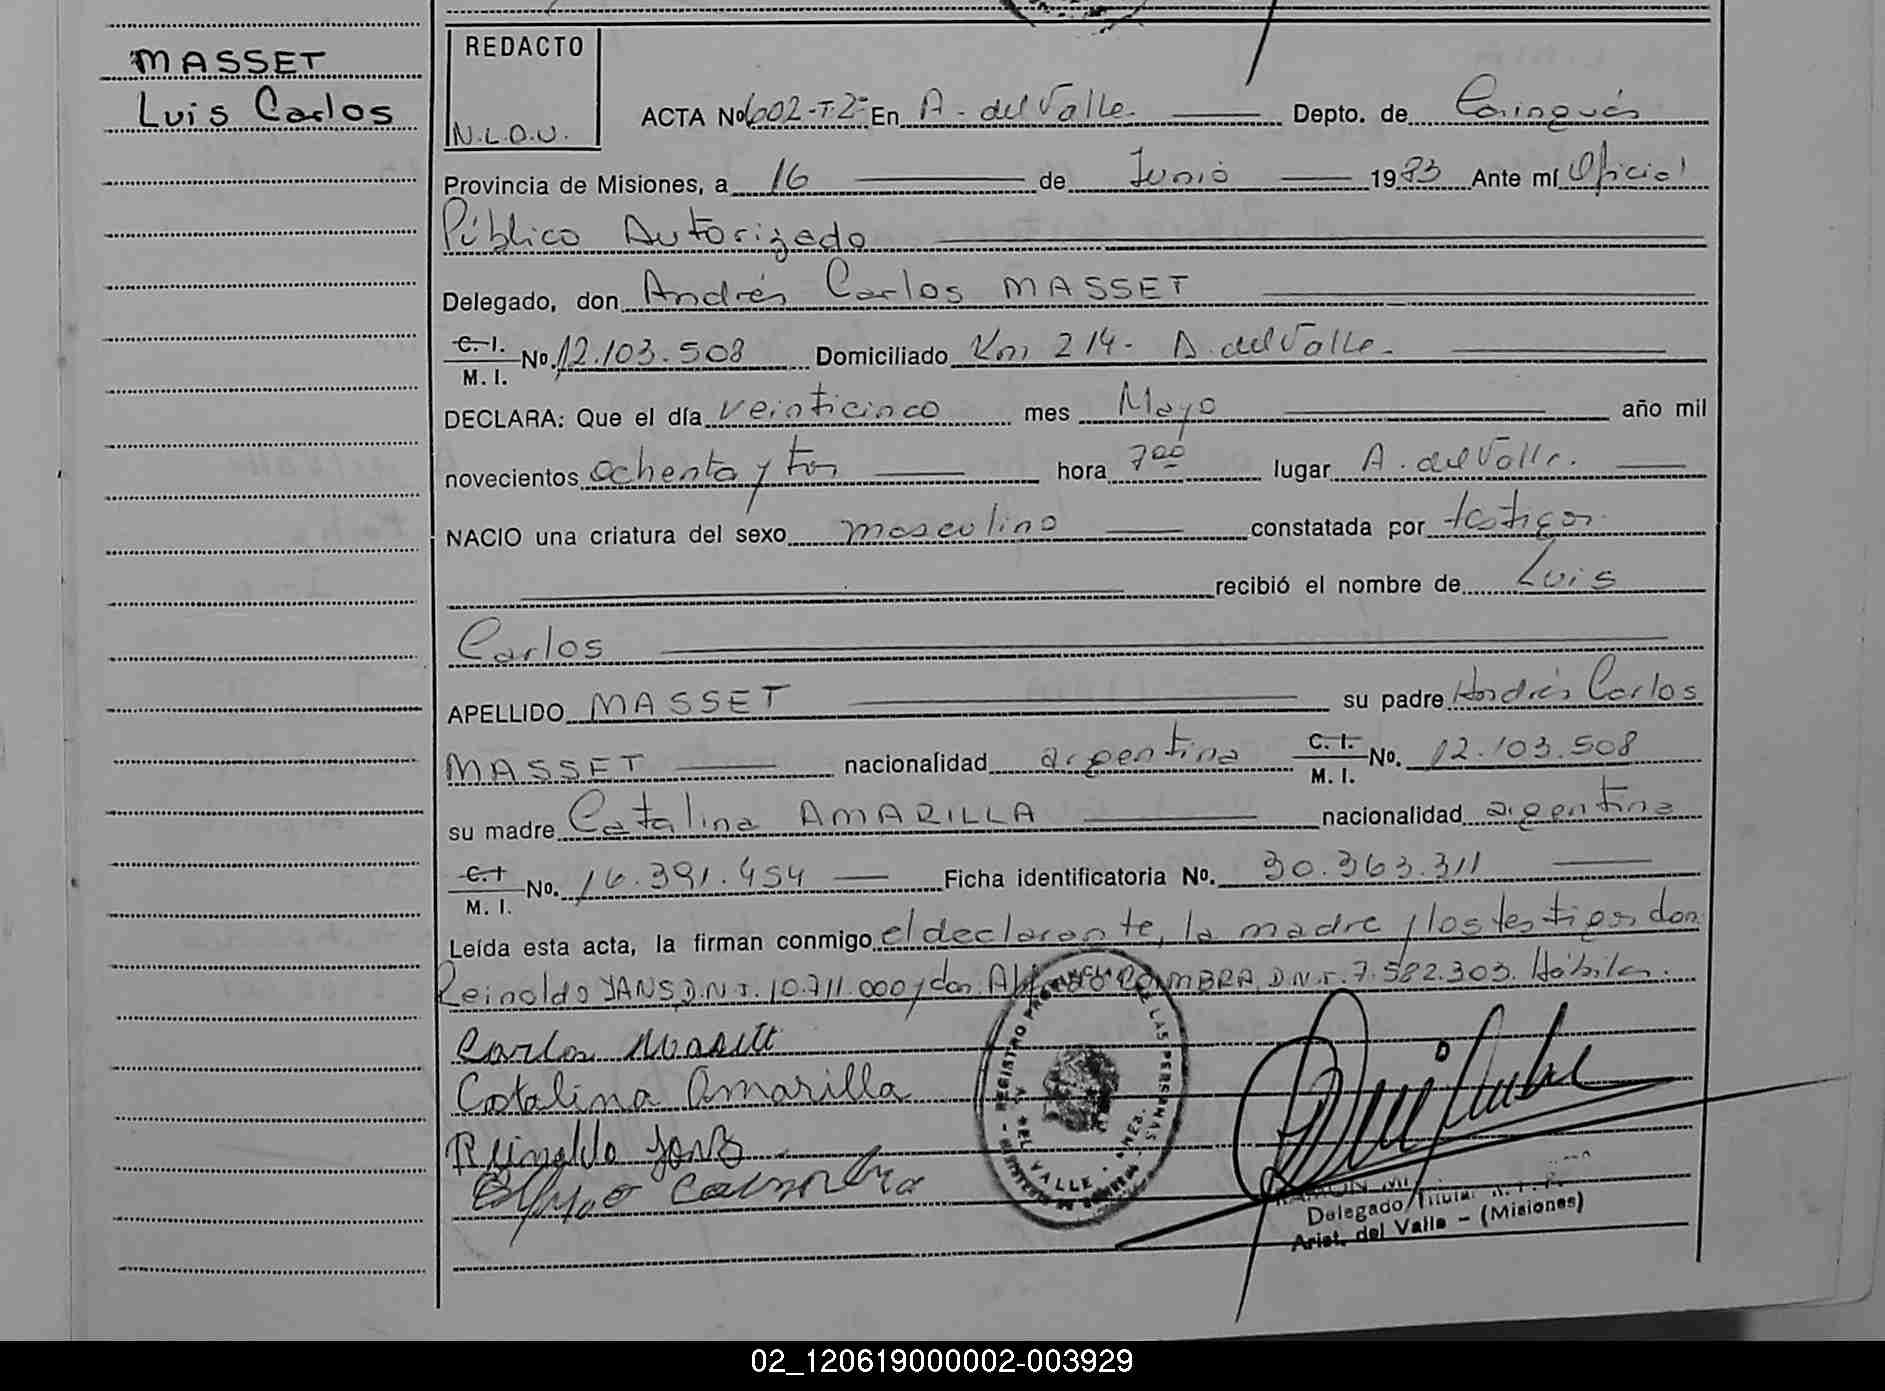 MASSET
Luis Carlos
REDACTO
N.L.O.U.
ACTA No 602-T.2- En A. del Valle. Depto. de Cainguás
Provincia de Misiones, a 16 de Junio 1983 Ante mí Oficial
Público Autorizado
Delegado, don Andrés Carlos MASSET
C. I. M. I. No. 12.103.508 Domiciliado Km 214- A. del Valle.
DECLARA: Que el día veinticinco mes Mayo año mil
novecientos ochenta y tres hora 7 00 lugar A. del Valle.
NACIO una criatura del sexo masculino constatada por testigos
recibió el nombre de Luis
Carlos
APELLIDO MASSET su padre Andrés Carlos
MASSET nacionalidad argentina C. I. M. I. No. 12.103.508
su madre Catalina AMARILLA nacionalidad argentina
C. I. M. I. No. 16.391.454 Ficha identificatoria No. 30.363.311
Leída esta acta, la firman conmigo el declarante, la madre y los testigos don
Reinoldo YANS D.N.I. 10.711.000 y don COIMBRA D.N.I. 7.582.303. Hábiles.
Carlos Masett
Catalina Amarilla
Reinaldo Yans
Coimbra
REGISTRO PROVINCIAL DE LAS PERSONAS
A. DEL VALLE - MNES.
Delegado Titular
Arist. del Valle - (Misiones)
02_120619000002-003929